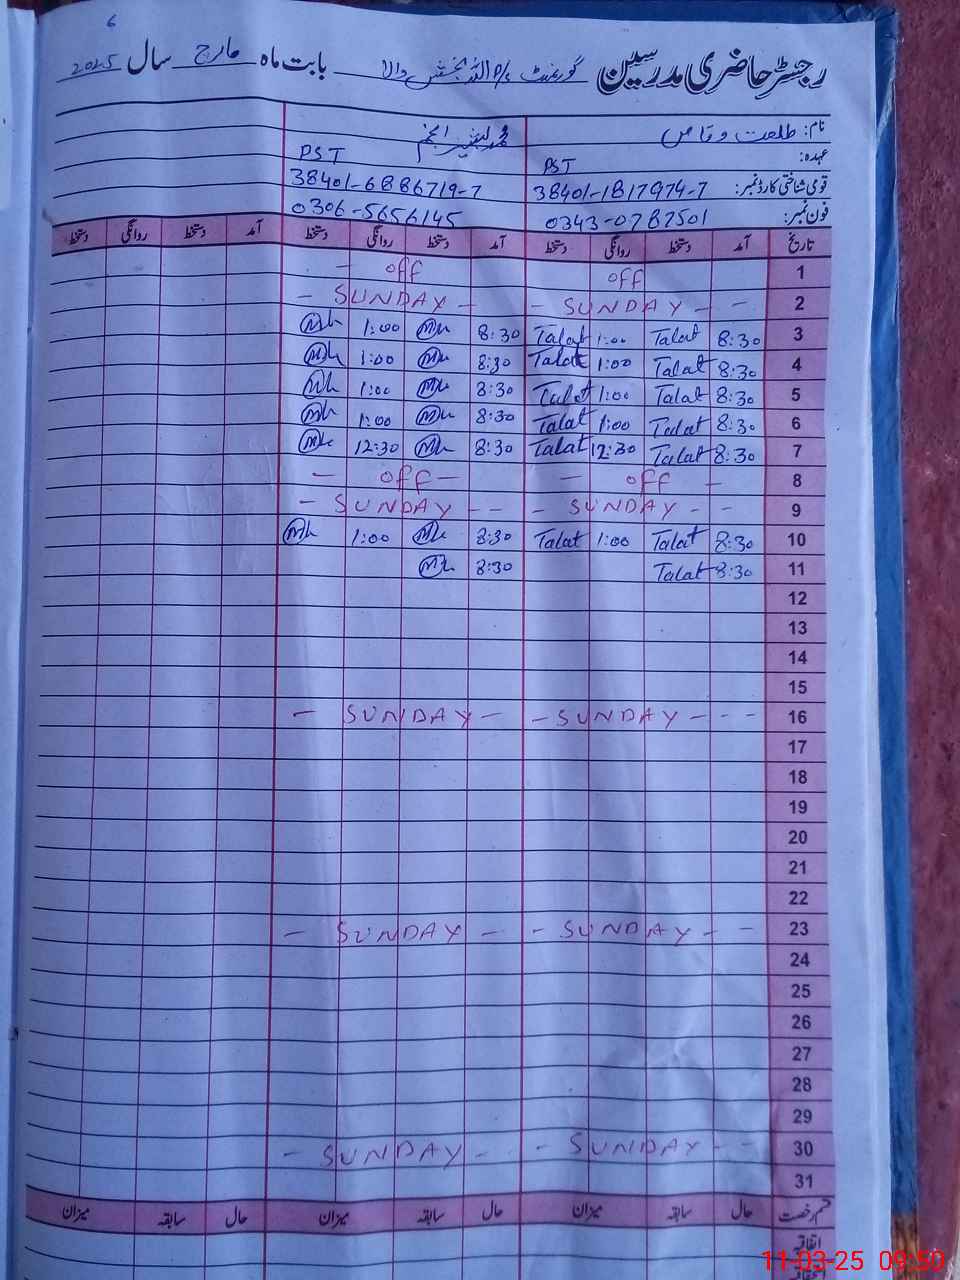 6
رجسٹر حاضری مدرسین گورنمنٹ P/S اللہ بخش والا بابت ماہ مارچ سال 2025
نام: طلعت وقاص محمد بشیر انجم
عہدہ: PST PST
قومی شناختی کارڈ نمبر: 38401-1817974-7 38401-6886719-7
فون نمبر: 0343-0787501 0306-5656145
تاریخ آمد دستخط روانگی دستخط آمد دستخط روانگی دستخط آمد دستخط روانگی دستخط
1 off off -
2 - SUNDAY - - - SUNDAY -
3 8:30 Talat 1:00 Talat 8:30 1:00
4 8:30 Talat 1:00 Talat 8:30 1:00
5 8:30 Talat 1:00 Talat 8:30 1:00
6 8:30 Talat 1:00 Talat 8:30 1:00
7 8:30 Talat 12:30 Talat 8:30 12:30
8 - off - - off -
9 - SUNDAY - - - SUNDAY - -
10 8:30 Talat 1:00 Talat 8:30 1:00
11 8:30 Talat 8:30
12
13
14
15
16 - SUNDAY - - - - SUNDAY -
17
18
19
20
21
22
23 - SUNDAY - - - SUNDAY -
24
25
26
27
28
29
30 - SUNDAY - - - SUNDAY -
31
قسم رخصت حال سابقہ میزان حال سابقہ میزان حال سابقہ میزان
اتفاقیہ
11-03-25 09:50